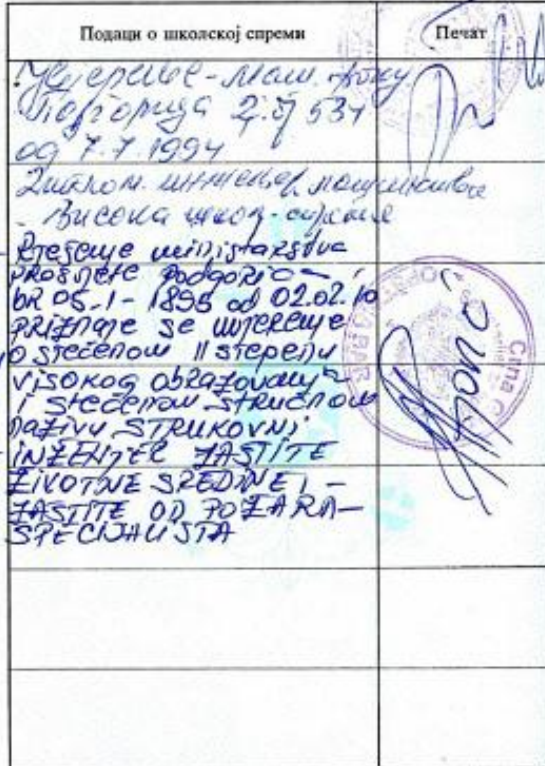 Подаци о школској спреми
Печат
Увјерење - Маш. факу
Подгорица 534
од 7.7.1994
Диплом. инжењер машинства
- Висока школ. спрема
Rješenje ministarstva
prosvjete Podgorica
br 05-1-1895 od 02.02.10
priznaje se uvjerenje
o stečenom II stepenu
visokog obrazovanja
i stečenom stručnom
nazivu STRUKOVNI
INŽENJER ZAŠTITE
ŽIVOTNE SREDINE I -
ZAŠTITE OD POŽARA -
SPECIJALISTA
Crna